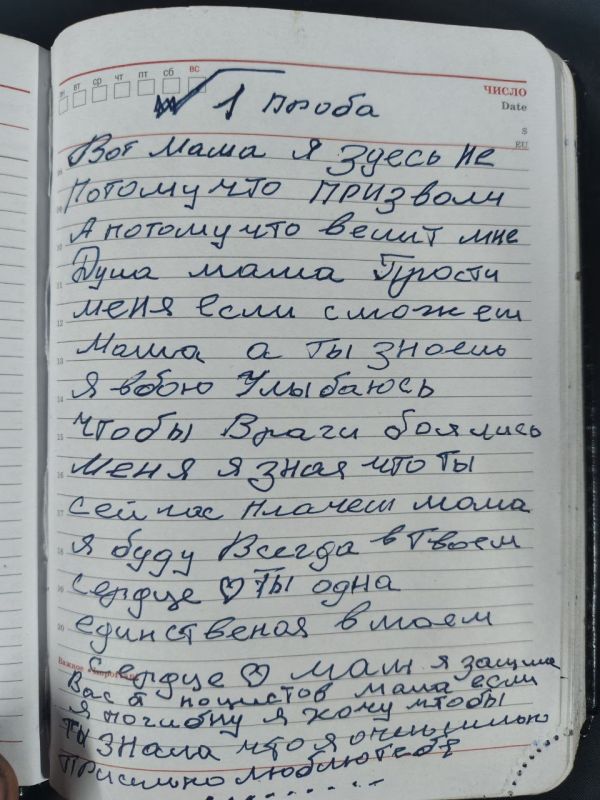 пн вт ср чт пт сб вс
число
Date
$
EU
1 проба
Вот мама я здесь не
потому что призвали
А потому что велит мне
Душа мама Прости
меня если сможеш
Мама а ты знаешь
я в бою Улыбаюсь
чтобы Враги боялись
меня я зная что ты
сейчас плачеш мама
я буду Всегда в Твоем
сердце ♡ Ты одна
единственая в моем
сердце ♡ мам я защища
Важное
Вас от нацистов мама если
я погибну я хочу чтобы
ты знала что я очень сильно
присильно люблю тебя